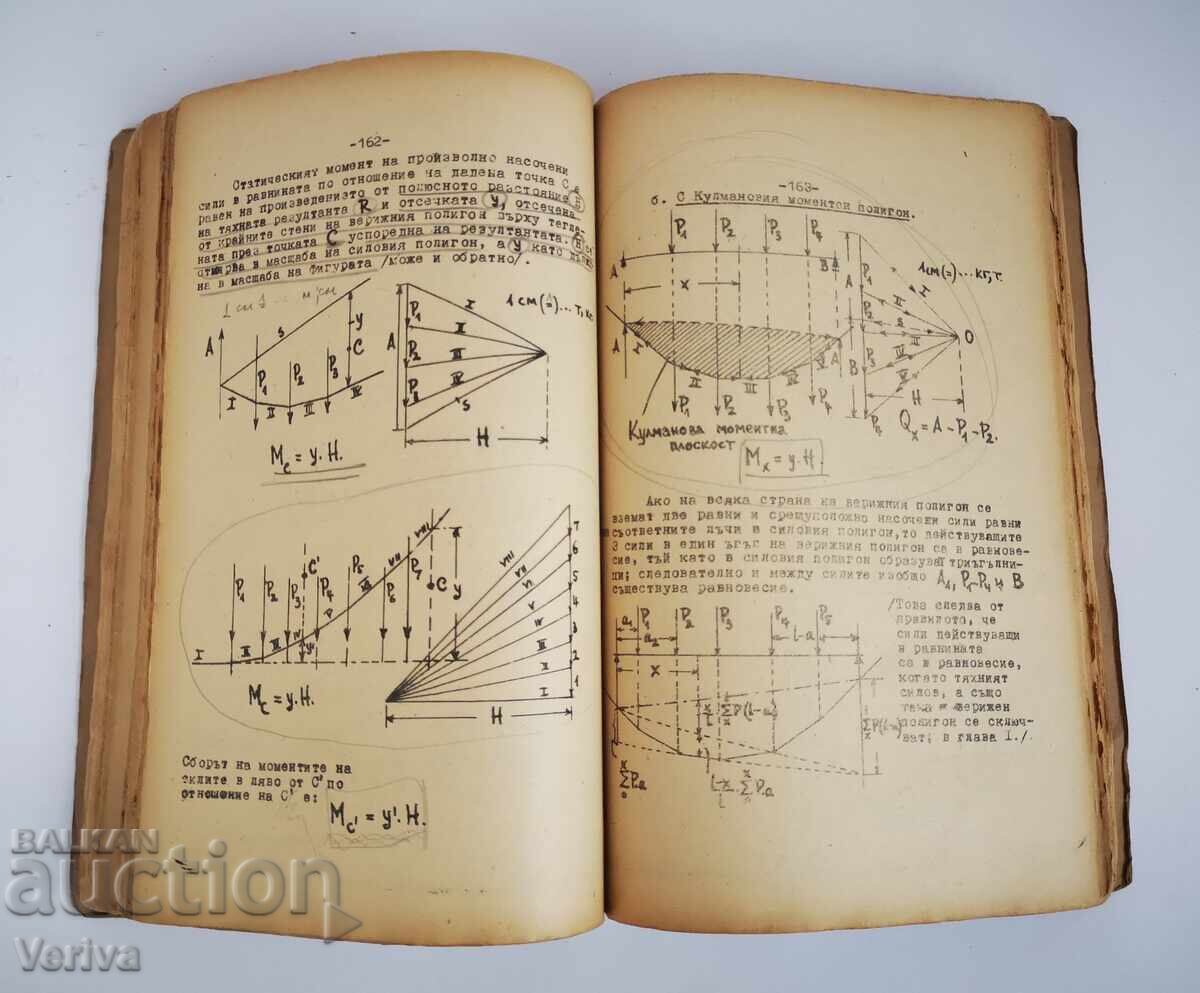 -162-
Статическият момент на произволно насочени
сили в равнината по отношение на дадена точка С е
равен на произведението от полюсното разстояние H
на тяхната резултанта R и отсечката y, отсечена
от крайните стени на верижния полигон върху тегле-
ната през точката C успоредна на резултантата. H се
отмярва в масщаба на силовия полигон, а y като
на в масщаба на фигурата /може и обратно/.
1 см (=)... т, кг.
A S y C P1 P2 P3 I II III IV
A P1 P2 P3 I II III IV S H
Mc = y.H.
P1 P2 P3 P4 P5 P6 P7 C' C y y'
I II III IV V VI VII VIII
1 2 3 4 5 6 7 H
Mc = y.H.
Сборът на моментите на
силите в ляво от C' по
отношение на C' е:
Mc' = y'.H.
-163-
б. С Кулмановия моментен полигон.
P1 P2 P3 P4
A B x
1 см (=)... кг, т.
A B P1 P2 P3 P4 I II S III IV V O H
P1 P2 P3 P4
Qx = A - P1 - P2.
Кулманова моментна
плоскост
Mx = y.H.
Ако на всяка страна на верижния полигон се
вземат две равни и срещуположно насочени сили равни
на съответните лъчи в силовия полигон, то действуващите
3 сили в един ъгъл на верижния полигон са в равнове-
сие, тъй като в силовия полигон образуват триъгълни-
ци; следователно и между силите изобщо A1, P1-P4 и B
съществува равновесие.
/Това следва от
правилото, че
сили действуващи
в равнината
са в равновесие,
когато тяхният
силов, а също
така и верижен
полигон се сключ-
ват; в глава I./
P1 P2 P3 P4 P5
a1 a2 l-a x
BALKAN
auction
Veriva